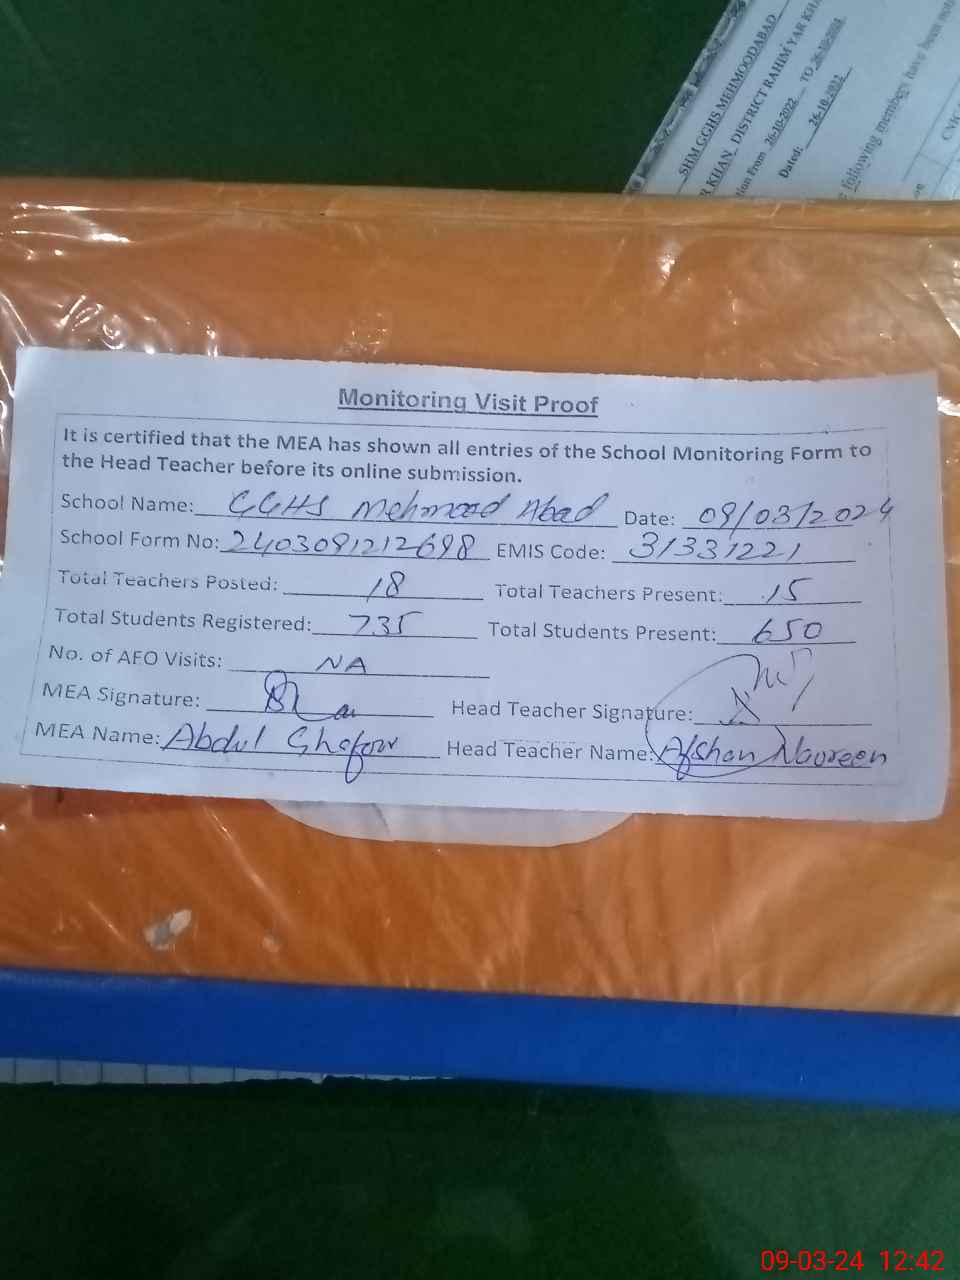 SHM GGHS MEHMOODABAD
R KHAN DISTRICT RAHIM YAR KHA
ion From 26-10-2022 TO 26-10-2024
Dated: 26-10-2022
following members have been
CNIC
Monitoring Visit Proof
It is certified that the MEA has shown all entries of the School Monitoring Form to
the Head Teacher before its online submission.
School Name: GGHS Mehmood Abad Date: 09/03/2024
School Form No: 2403091212698 EMIS Code: 31331221
Total Teachers Posted: 18 Total Teachers Present: 15
Total Students Registered: 735 Total Students Present: 650
No. of AEO Visits: NA
MEA Signature: Head Teacher Signature:
MEA Name: Abdul Ghafoor Head Teacher Name: Afshan Navreen
09-03-24 12:42